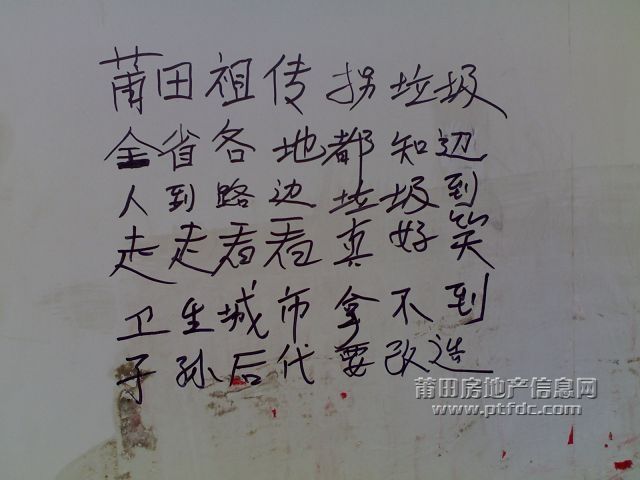 莆田祖传拐垃圾
全省各地都知边
人到路边垃圾到
走走看看真好笑
卫生城市拿不到
子孙后代要改造
莆田房地产信息网
www.ptfdc.com